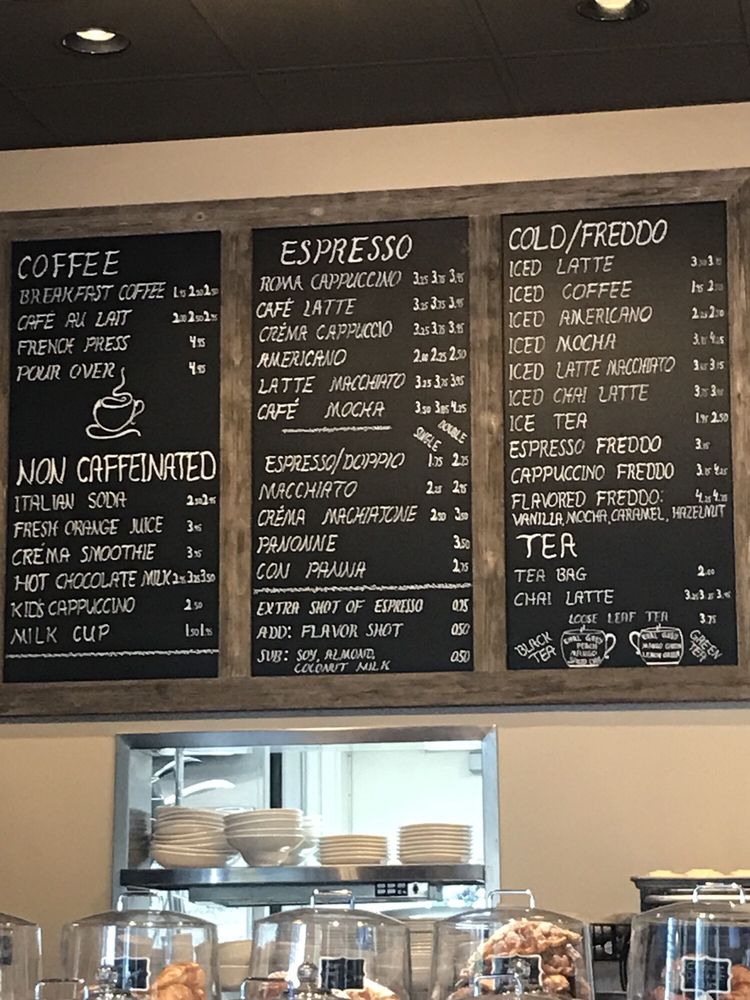 COFFEE
BREAKFAST COFFEE 1.95 2.50 2.95
CAFÉ AU LAIT
FRENCH PRESS 4.95
POUR OVER 4.95
NON CAFFEINATED
ITALIAN SODA 2.50 2.95
FRESH ORANGE JUICE 3.95
CRÉMA SMOOTHIE 3.95
HOT CHOCOLATE MILK 2.95 3.25 3.50
KIDS CAPPUCCINO 2.50
MILK CUP 1.50 1.95
ESPRESSO
ROMA CAPPUCCINO 3.25 3.75 3.95
CAFÉ LATTE 3.25 3.75 3.95
CRÉMA CAPPUCCIO 3.25 3.75 3.95
AMERICANO 2.00 2.25 2.50
LATTE MACCHIATO 3.25 3.75 3.95
CAFÉ MOCHA 3.50 3.85 4.25
SINGLE DOUBLE
ESPRESSO/DOPPIO 1.75 2.25
MACCHIATO
CRÉMA MACHIATONE
PANONNE 3.50
CON PANNA 2.75
EXTRA SHOT OF ESPRESSO 0.75
ADD: FLAVOR SHOT 0.50
SUB: SOY, ALMOND, 0.50
COCONUT MILK
COLD/FREDDO
ICED LATTE
ICED COFFEE
ICED AMERICANO
ICED MOCHA
ICED LATTE MACCHIATO
ICED CHAI LATTE
ICE TEA 1.95 2.50
ESPRESSO FREDDO
CAPPUCCINO FREDDO
FLAVORED FREDDO:
VANILLA, MOCHA, CARAMEL, HAZELNUT
TEA
TEA BAG 2.00
CHAI LATTE
LOOSE LEAF TEA 3.75
BLACK TEA
EARL GREY
PEACH
MANGO
GREEN TEA
EARL GREY
MANGO GREEN
LEMON GREEN